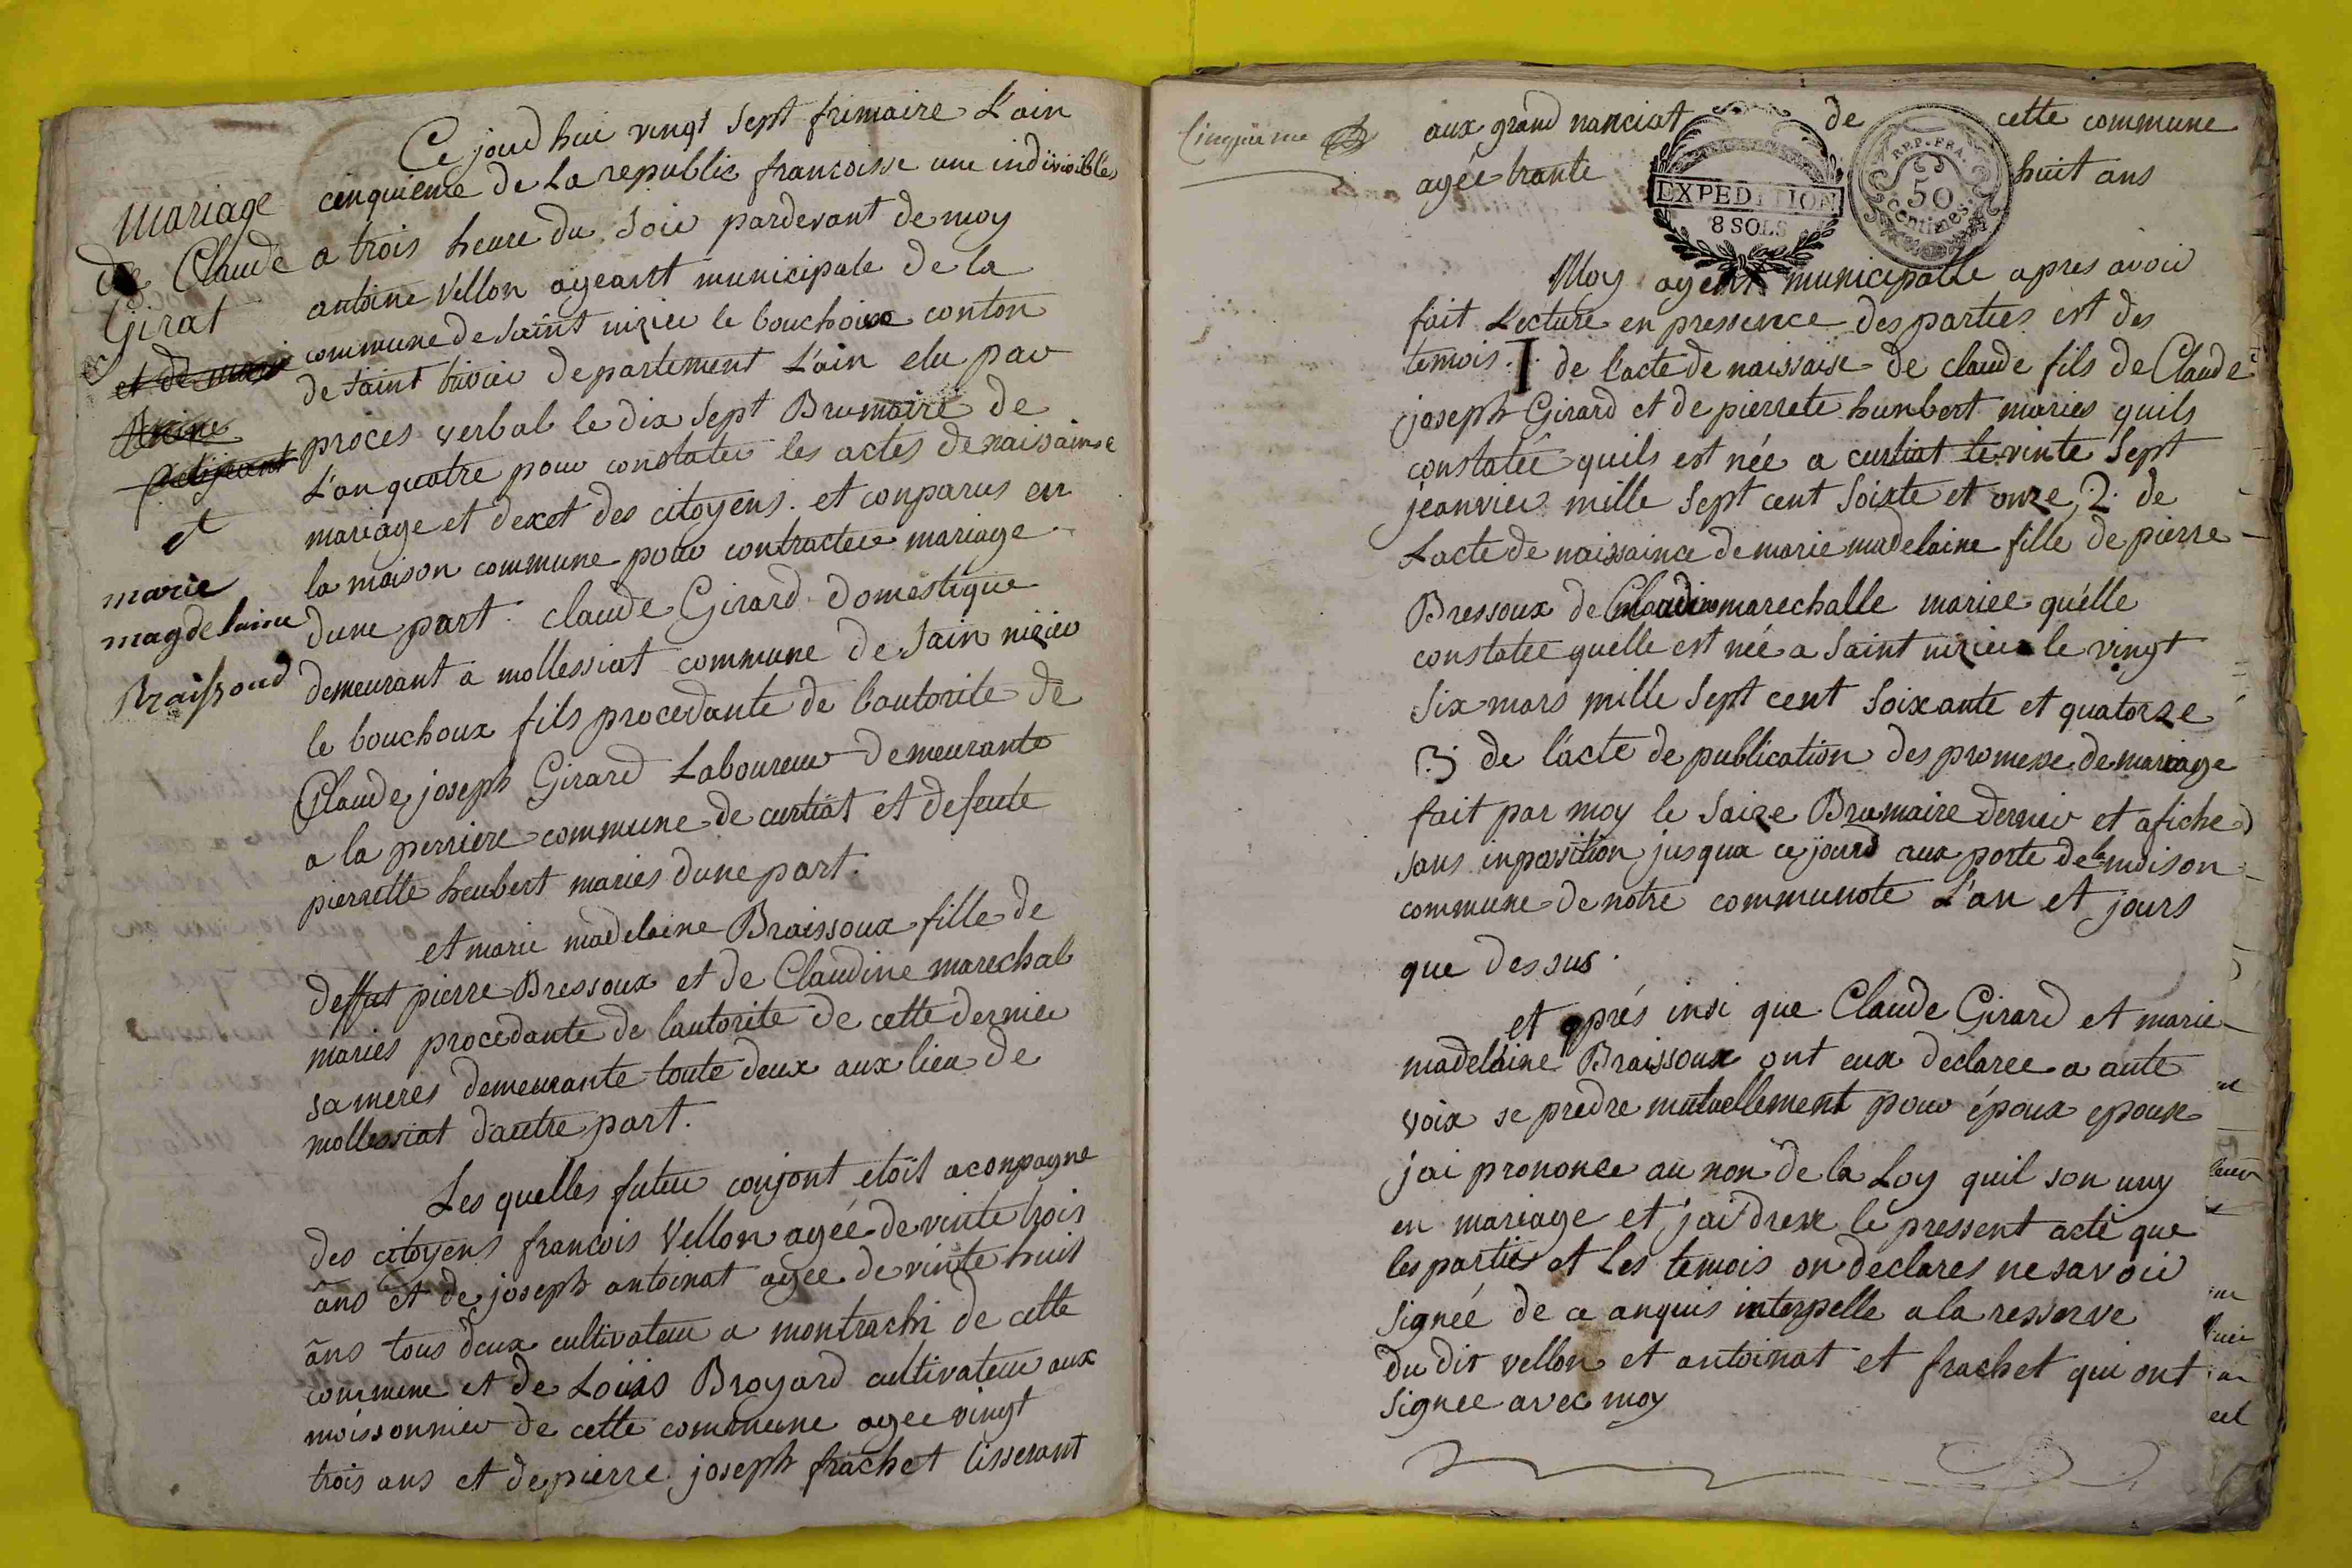 Mariage
de Claude
Girat
et de marie
et
marie
magdelaine
Braissoud
Ce jourd hui vingt Sept frimaire L'ain
cinquieme de La republic francoisse une indivisible
a trois heure du Soir pardevant de moy
antoine Vellon ageant municipale de la
commune de Saint nizier le bouchoux conton
de Saint trivier departement L'ain elu par
proces verbal le dix Sept Brumaire de
L'an quatre pour constater les actes de naisainse
mariage et dexet des citoyens. et conparus en
la maison commune pour contracter mariage
dune part. claude Girard domestique
demeurant a mollessiat commune de Sain nizier
le bouchoux fils procedante de L'autorite de
Claude joseph Girard Laboureur demeurante
a la perriere commune de curtiat et defeute
pierrette heubert maries dune part.
et marie madelaine Braissoux fille de
deffut pierre Bressoux et de Claudine marechal
maries procedante de lautorite de cette dernier
sa meres demeurante toute deux aux lieu de
mollessiat dautre part.
Les quelles futur conjont etoit aconpagne
des citoyens francois Vellon agée de vinte trois
ans et de joseph antoinat agee de vinte huit
ans tous deux cultivateur a montrachi de cette
commune et de Louis Broyard cultivateur aux
moissonnier de cette commune agee vingt
trois ans et de pierre joseph frachet tisserant
Cinquieme
aux grand nanciat de cette commune
agée trante huit ans
EXPEDITION
8 SOLS
REP. FRA.
50
centimes.
Moy agent municipalle apres avoir
fait Lecture en pressence des parties est des
temois. I. de l'acte de naissaise de claude fils de Claude
joseph Girard et de pierrete hunbert maries quils
constatée quils est née a curtiat le vinte Sept
jeanvier mille Sept cent Soixte et onze, 2. de
L'acte de naissaince de marie madelaine fille de pierre
Bressoux de Claudine marechalle mariee qu'elle
constatee quelle est née a Saint nizier le vingt
Six mars mille Sept cent Soixante et quatorze
3. de l'acte de publication des promesse de mariage
fait par moy le Saize Brumaire dernier et afiche
sans inposition jusqua ce jourd aux porte de la maison
commune de notre communote L'an et jours
que dessus.
et aprés insi que Claude Girard et marie
madelaine Braissoux ont eux declaree a aute
voix se predre mutuellement pour époux epouse
jai prononce au non de la Loy quil son uny
en mariage et j'ai dresse le pressent acte que
les parties et Les temois on declares ne savoir
signée de ce anquis interpelle a la resserve
du dit vellon et antoinat et frachet qui ont
signee avec moy